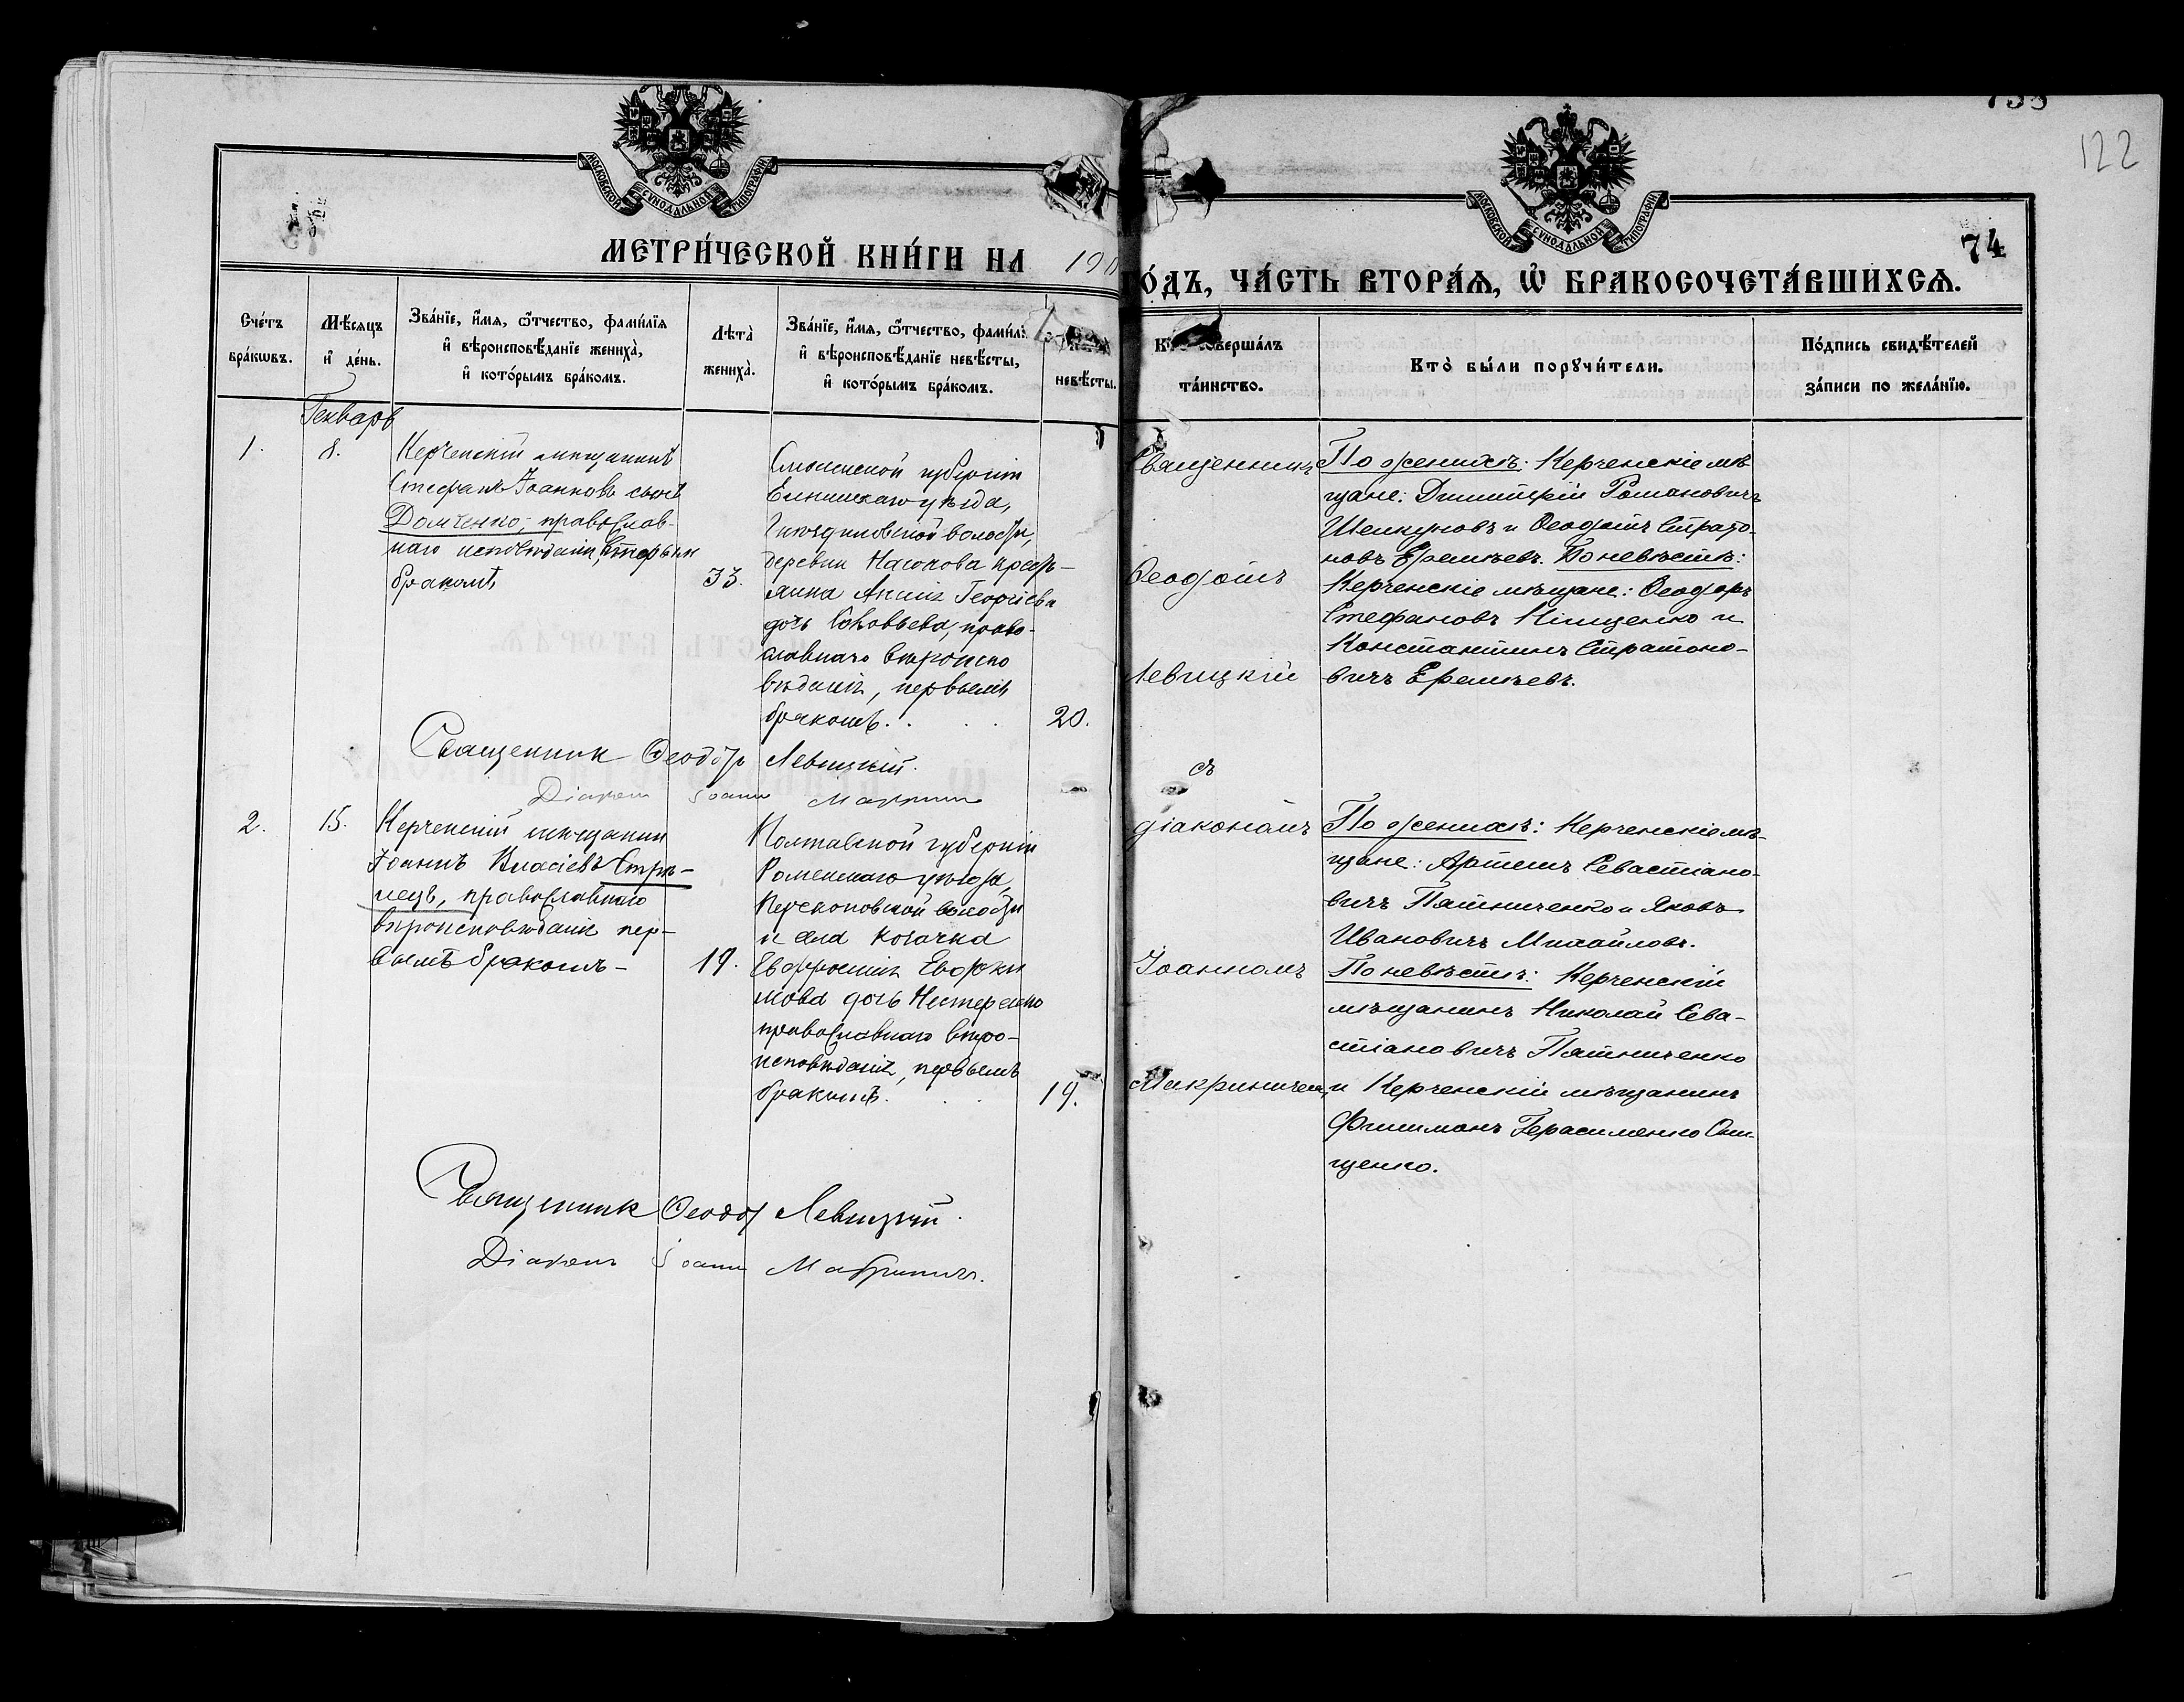 122
74
МОСКОВСКОЙ СУНОДАЛЬНОЙ ТИПОГРАФІИ
МОСКОВСКОЙ СУНОДАЛЬНОЙ ТИПОГРАФІИ
МЕТРИ́ЧЕСКОЙ КНИ́ГИ НА 19
ГО́ДЪ, ЧА́СТЬ ВТОРА́Я, Ѽ БРАКОСОЧЕТА́ВШИХСЯ.
Сче́тъ
бра́кѡвъ.
Мѣ́сяцъ
и҆ де́нь.
Зва́нїе, и҆́мя, ѻ҆́тчество, фами́лїя
и҆ вѣроисповѣ́данїе жениха̀,
и҆ кото́рымъ бра́комъ.
Лѣта̀
жениха̀.
Зва́нїе, и҆́мя, ѻ҆́тчество, фами́лї
и҆ вѣроисповѣ́данїе невѣ́сты,
и҆ кото́рымъ бра́комъ.
невѣ́сты.
соверша́лъ
та́инство.
Кто̀ бы́ли порꙋчи́тели.
По́дпись свидѣ́телей
за́писи по жела́нїю.
Генварь
1.
8.
Керченскій мѣщанинъ
Стефанъ Іоанновъ сынъ
Домченко, православ-
наго исповѣданія, вторымъ
бракомъ
33.
Смоленской губерніи
Ельнинскаго уѣзда,
волости,
деревни крестъ-
янка Георгіева
дочь Соловьева, право-
славнаго вѣроиспо
вѣданія, первымъ
бракомъ.
20.
Священникъ
Ѳеодотъ
Левицкій
По женихѣ: Керченскіе мѣ
щане: Димитрій Романовичъ
Шелкуновъ и Ѳеодотъ Страто-
новъ Еремѣевъ. По невѣстѣ:
Керченскіе мѣщане: Ѳеодоръ
Стефановъ Нищенко и
Константинъ Стратоно-
вичъ Еремѣевъ.
Священник Ѳеодоръ Левицкій.
Діаконъ Іоаннъ
2.
15.
Керченскій мѣщанин
Іоаннъ Власіевъ Стрѣ-
лецъ, православнаго
вѣроисповѣданія пер-
вымъ бракомъ -
19.
Полтавской губерніи
Роменскаго уѣзда,
Перекоповской волости
и села
Евфросинія Евфи
мова дочь Нестеренко
православнаго вѣро-
исповѣданія, первымъ
бракомъ.
19.
съ
діакономъ
Іоанномъ
Макриничемъ
По женихѣ: Керченскіе мѣ-
щане: Артемъ Севастіано-
вичъ Пятниченко и Яковъ
Ивановичъ Михайловъ.
По невѣстѣ: Керченскій
мѣщанинъ Николай Сева-
стіановичъ Пятниченко
и Керченскій мѣщанинъ
Филимонъ Герасименко Они-
щенко.
Священник Ѳеодор Левицкій.
Діаконъ Іоаннъ Макриничъ.